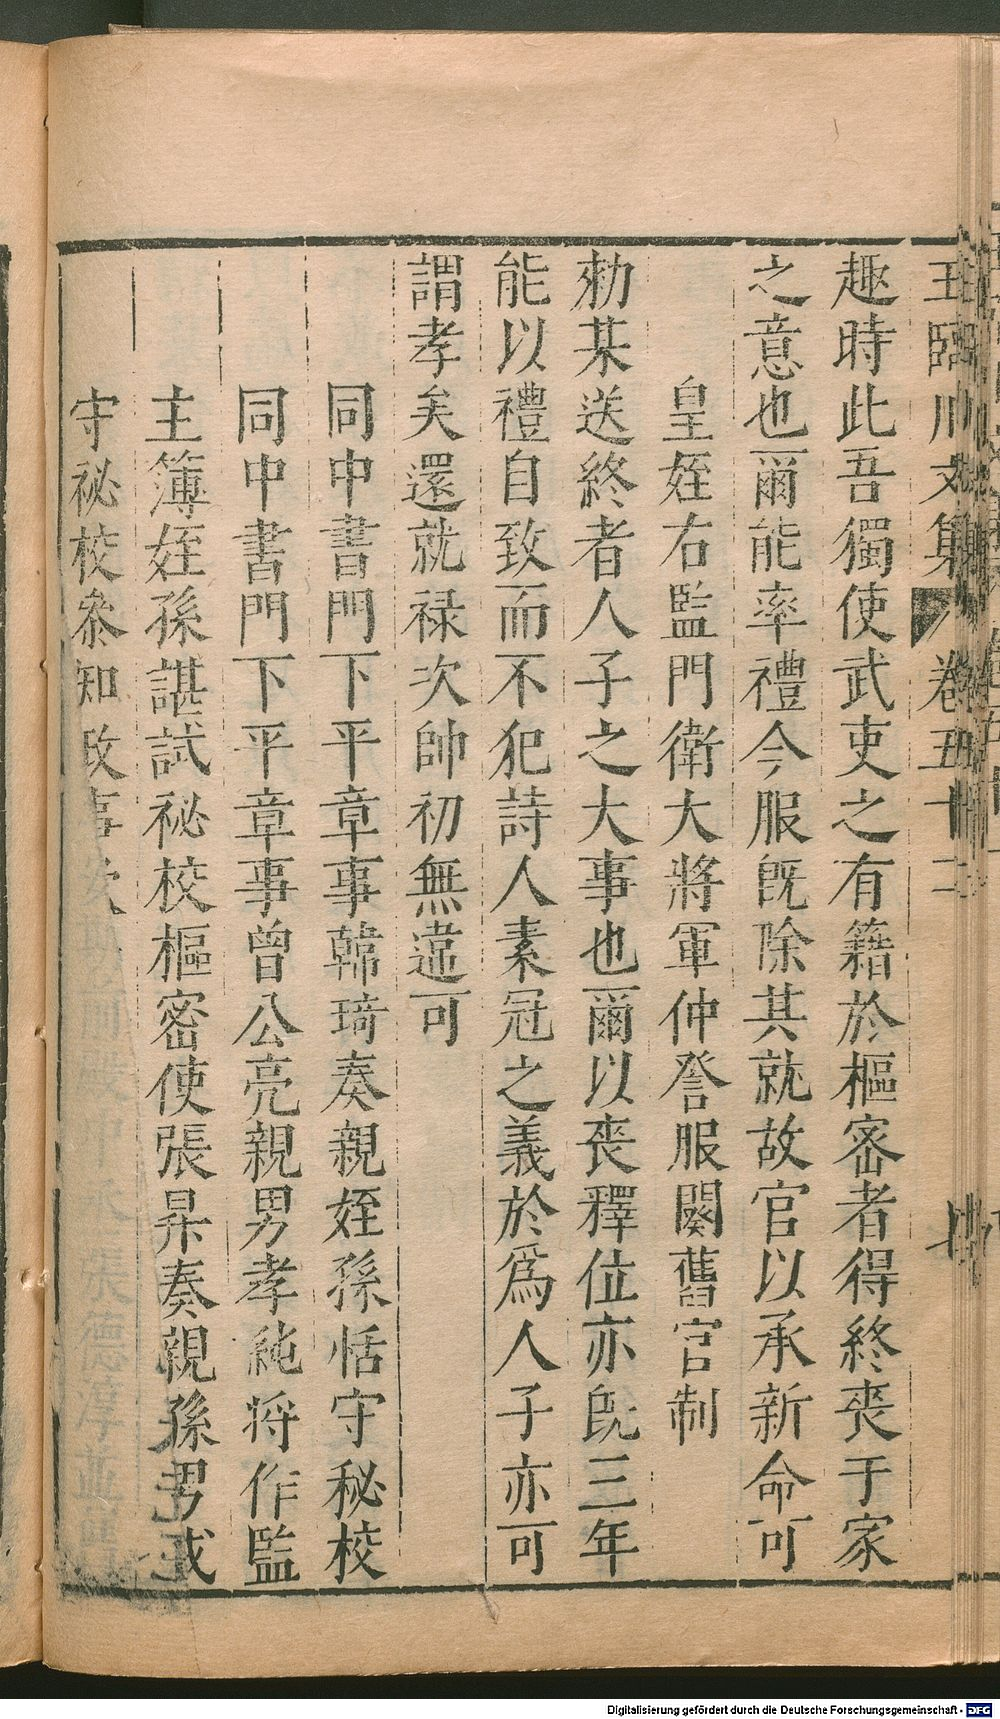 王臨川文集 卷五十二
趣時此吾獨使武吏之有籍於樞密者得終喪于家
之意也爾能率禮今服既除其就故官以承新命可
皇姪右監門衛大將軍仲詧服闋舊官制
勑某送終者人子之大事也爾以喪釋位亦既三年
能以禮自致而不犯詩人素冠之義於爲人子亦可
謂孝矣還就禄次帥初無違可
同中書門下平章事韓琦奏親姪孫恬守秘校
同中書門下平章事曾公亮親男孝純將作監
主簿姪孫諶試祕校樞密使張昇奏親孫男戓
守祕校叅知政事
Digitalisierung gefördert durch die Deutsche Forschungsgemeinschaft - DFG